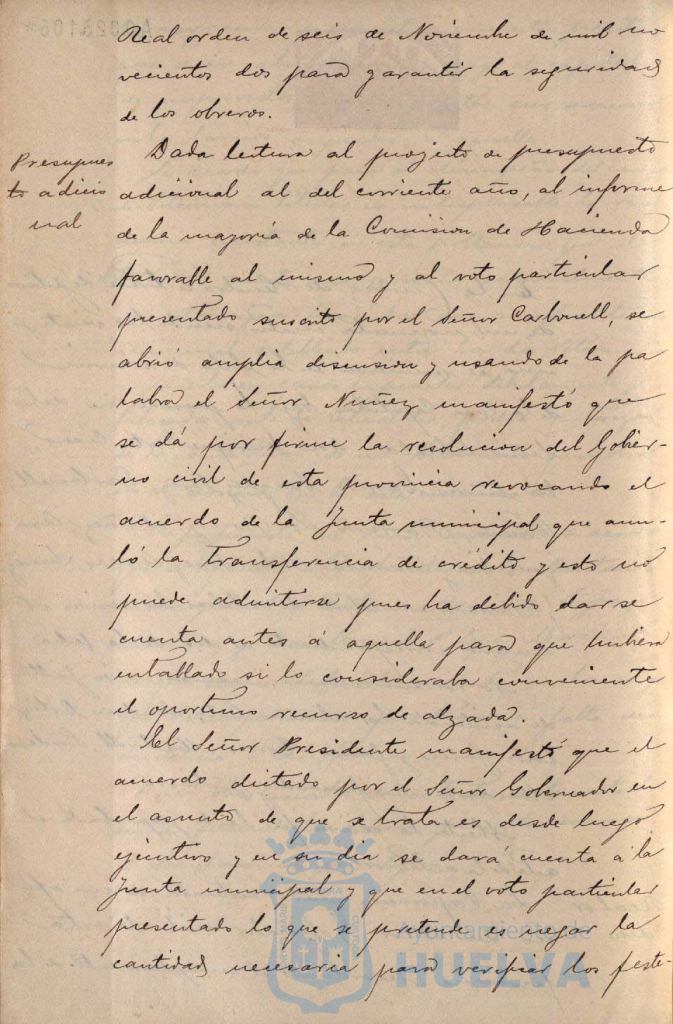 Real orden de seis de Noviembre de mil no
vecientos dos para garantir la seguridad
de los obreros.
Presupues
to adicio
nal
Dada lectura al projecto de presupuesto
adicional al del corriente año, al informe
de la mayoría de la Comision de Hacienda
favorable al mismo y al voto particular
presentado suscrito por el Señor Carbonell, se
abrió amplia discusion y usando de la pa
labra el Señor Nuñez manifestó que
se dá por firme la resolucion del Gobier-
no civil de esta provincia revocando el
acuerdo de la Junta municipal que anu-
ló la transferencia de crédito y esto no
puede admitirse pues ha debido darse
cuenta antes á aquella para que hubiera
entablado si lo consideraba conveniente
el oportuno recurso de alzada.
El Señor Presidente manifestó que el
acuerdo dictado por el Señor Gobernador en
el asunto de que se trata es desde luego
ejecutivo y en su dia se dará cuenta á la
Junta municipal y que en el voto particular
presentado lo que se pretende es negar la
cantidad necesaria para verificar los feste-
Ayuntamiento de
HUELVA